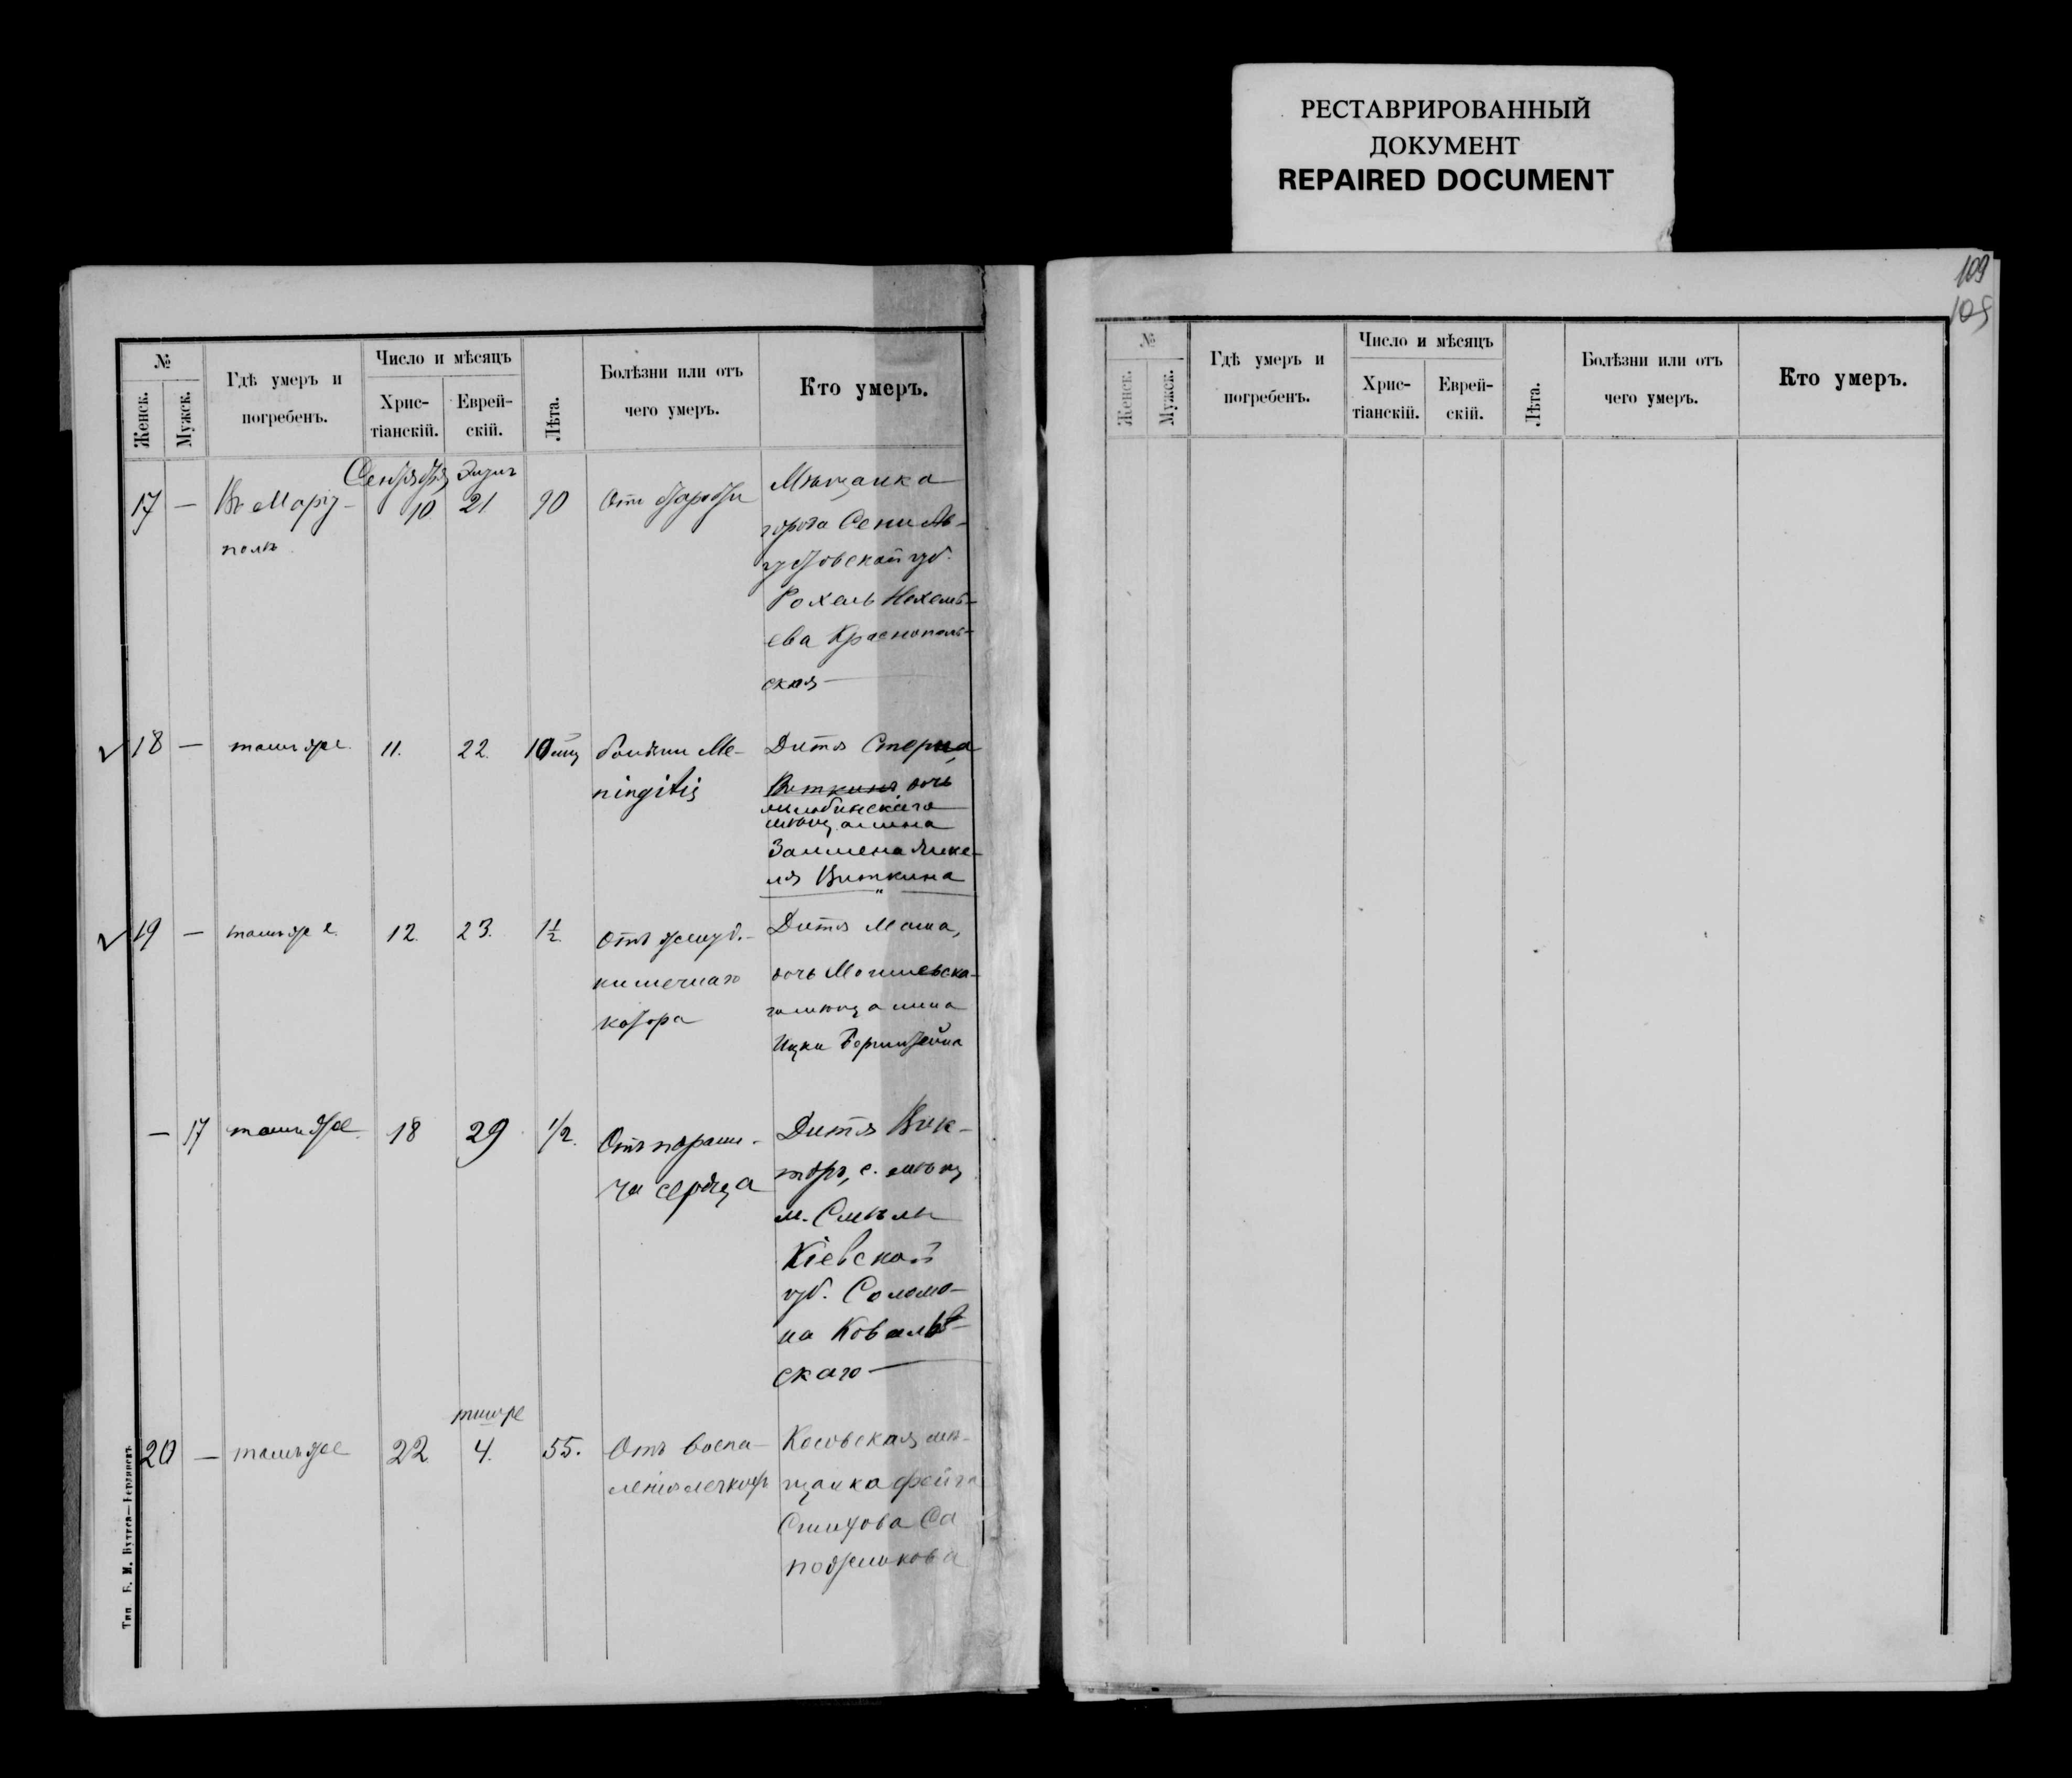 РЕСТАВРИРОВАННЫЙ
ДОКУМЕНТ
REPAIRED DOCUMENT
109
109
№
Женск.
Мужск.
Гдѣ умеръ и
погребенъ.
Число и мѣсяцъ
Хрис-
тіанскій.
Еврей-
скій.
Лѣта.
Болѣзни или отъ
чего умеръ.
Кто умеръ.
17 —
Въ Маріу-
полѣ
Сентября
10
Элулъ
21
90
Отъ старости
Мѣщанка
города
губ.
Рохель
ева Краснополь-
ская —
18 —
тамъ же
11.
22.
10 мѣц
болѣзни Ме-
ningitis
Дитя Стерна,
Виткина дочь
мѣщанина
Залмена
ля Виткина
19 —
тамъ же
12.
23.
1½
Отъ желуд.-
кишечнаго
катара
Дитя Маша,
дочь Могилевска-
го мѣщанина
Ицки Бернштейна
— 17
тамъ же
18
29
1/2.
Отъ парали-
ча сердца
Дитя Вик-
торъ, с. мѣщ
м. Смѣлы
Кіевской
губ. Соломо-
на Коваль-
скаго —
20 —
тамъ же
22
тишре
4.
55.
Отъ воспа-
ленія легкихъ
мѣ-
щанка Фейга
Са
пожникова
Тип. Б. М.
№
Женск.
Мужск.
Гдѣ умеръ и
погребенъ.
Число и мѣсяцъ
Хрис-
тіанскій.
Еврей-
скій.
Лѣта.
Болѣзни или отъ
чего умеръ.
Кто умеръ.